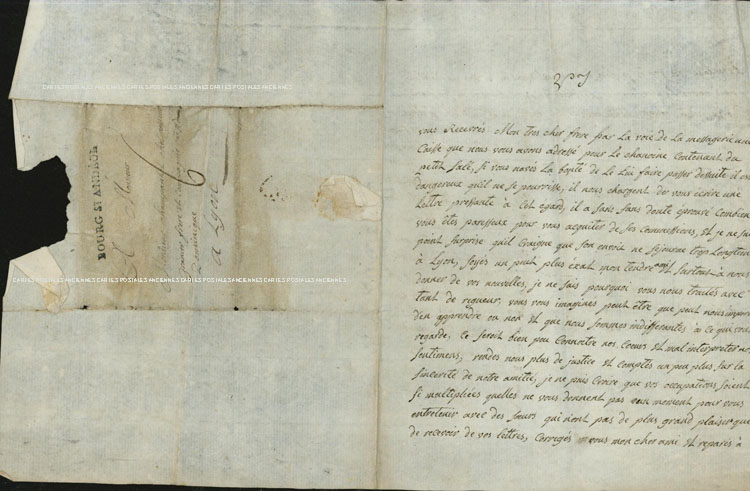 CARTES POSTALES ANCIENNES CARTES POSTALES ANCIENNES CARTES POSTALES ANCIENNES
BOURG ST ANDEOL
A Monsieur
6
Dominique
a Lyon
CARTES POSTALES ANCIENNES CARTES POSTALES ANCIENNES CARTES POSTALES ANCIENNES
vous Recevrés Mon tres cher frere par La voie de La messagerie une
Caisse que nous vous avons adressé pour Le chanoine Contenant du
petit salé, si vous navés La bonté de Le Lui faire passer dessuite il est
dangereux qu'il ne se pourrisse, il nous chargent de vous ecrire une
Lettre pressante à cet egard, il a sans doute eprouvé Combien
vous êtes paresseux pour vous acquiter de ses Commissions, et je ne suis
point surprise quil Craigne que son envoit ne sejourne trop Longtems
à Lyon, soyés un peut plus éxat mon tendre ami et surtout à nous
donner de vos nouvelles, je ne sais pourquoi vous nous traités avec
tant de rigueur, vous vous imaginés peut être que peut nous importe
d'en apprendre ou non et que nous sommes indifferantes à ce qui vous
regarde, Ce seroit bien peu Connoitre nos Coeurs et mal interpreter nos
sentimens, rendés nous plus de justice et Comptés un peu plus sur La
sincerité de notre amitié, je ne puis Croire que vos occupations soient
si multipliées quelles ne vous donnent pas un moment pour vous
entretenir avec des soeurs qui n'ont pas de plus grand plaisir que
de recevoir de vos lettres, Corrigés vous mon cher ami et reparés à